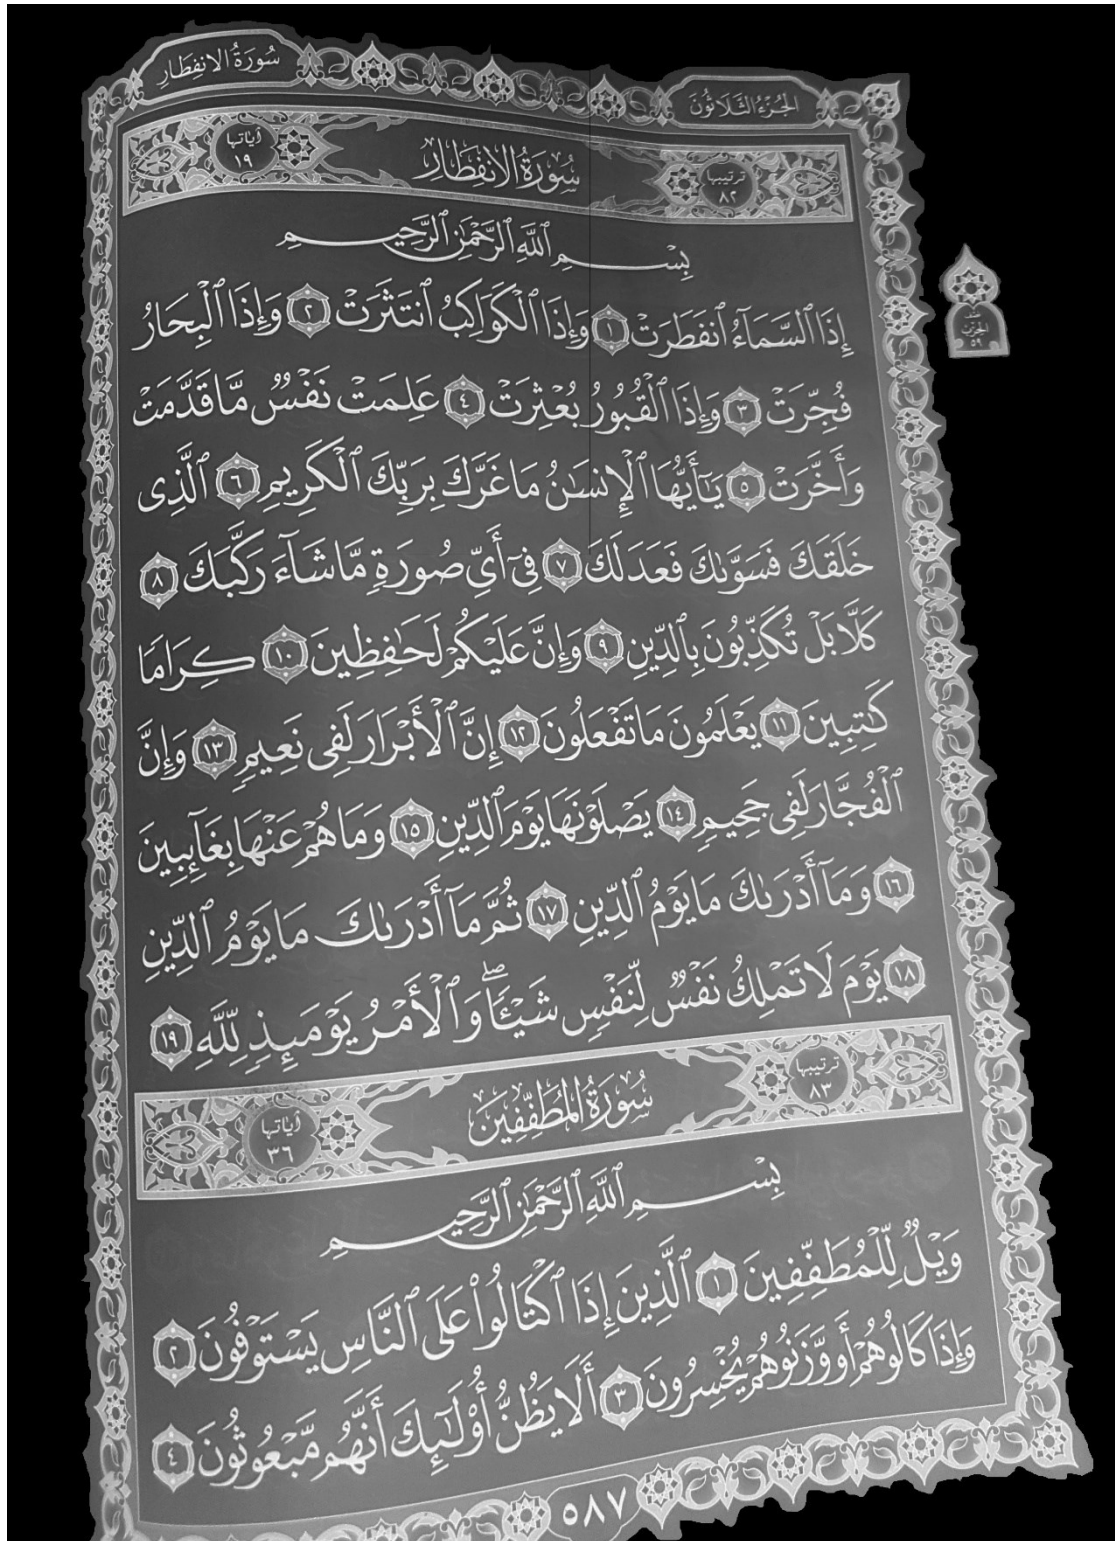 سُورَةُ الانفِطَارِ
الجُزْءُ الثَّلَاثُونَ
ترتيبها
٨٢
سُورَةُ الانفِطَارِ
آياتها
١٩
بِسْمِ ٱللَّهِ ٱلرَّحْمَٰنِ ٱلرَّحِيمِ
إِذَا ٱلسَّمَآءُ ٱنفَطَرَتْ ١ وَإِذَا ٱلْكَوَاكِبُ ٱنتَثَرَتْ ٢ وَإِذَا ٱلْبِحَارُ
فُجِّرَتْ ٣ وَإِذَا ٱلْقُبُورُ بُعْثِرَتْ ٤ عَلِمَتْ نَفْسٌ مَّا قَدَّمَتْ
وَأَخَّرَتْ ٥ يَٰٓأَيُّهَا ٱلْإِنسَٰنُ مَا غَرَّكَ بِرَبِّكَ ٱلْكَرِيمِ ٦ ٱلَّذِى
خَلَقَكَ فَسَوَّىٰكَ فَعَدَلَكَ ٧ فِىٓ أَىِّ صُورَةٍ مَّا شَآءَ رَكَّبَكَ ٨
كَلَّا بَلْ تُكَذِّبُونَ بِٱلدِّينِ ٩ وَإِنَّ عَلَيْكُمْ لَحَٰفِظِينَ ١٠ كِرَامًا
كَٰتِبِينَ ١١ يَعْلَمُونَ مَا تَفْعَلُونَ ١٢ إِنَّ ٱلْأَبْرَارَ لَفِى نَعِيمٍ ١٣ وَإِنَّ
ٱلْفُجَّارَ لَفِى جَحِيمٍ ١٤ يَصْلَوْنَهَا يَوْمَ ٱلدِّينِ ١٥ وَمَا هُمْ عَنْهَا بِغَآئِبِينَ
١٦ وَمَآ أَدْرَىٰكَ مَا يَوْمُ ٱلدِّينِ ١٧ ثُمَّ مَآ أَدْرَىٰكَ مَا يَوْمُ ٱلدِّينِ
١٨ يَوْمَ لَا تَمْلِكُ نَفْسٌ لِّنَفْسٍ شَيْـًٔا ۖ وَٱلْأَمْرُ يَوْمَئِذٍ لِّلَّهِ ١٩
ترتيبها
٨٣
سُورَةُ المُطَفِّفِينَ
آياتها
٣٦
بِسْمِ ٱللَّهِ ٱلرَّحْمَٰنِ ٱلرَّحِيمِ
وَيْلٌ لِّلْمُطَفِّفِينَ ١ ٱلَّذِينَ إِذَا ٱكْتَالُوا۟ عَلَى ٱلنَّاسِ يَسْتَوْفُونَ ٢
وَإِذَا كَالُوهُمْ أَو وَّزَنُوهُمْ يُخْسِرُونَ ٣ أَلَا يَظُنُّ أُو۟لَٰٓئِكَ أَنَّهُم مَّبْعُوثُونَ ٤
٥٨٧
الحِزْب
٥٩